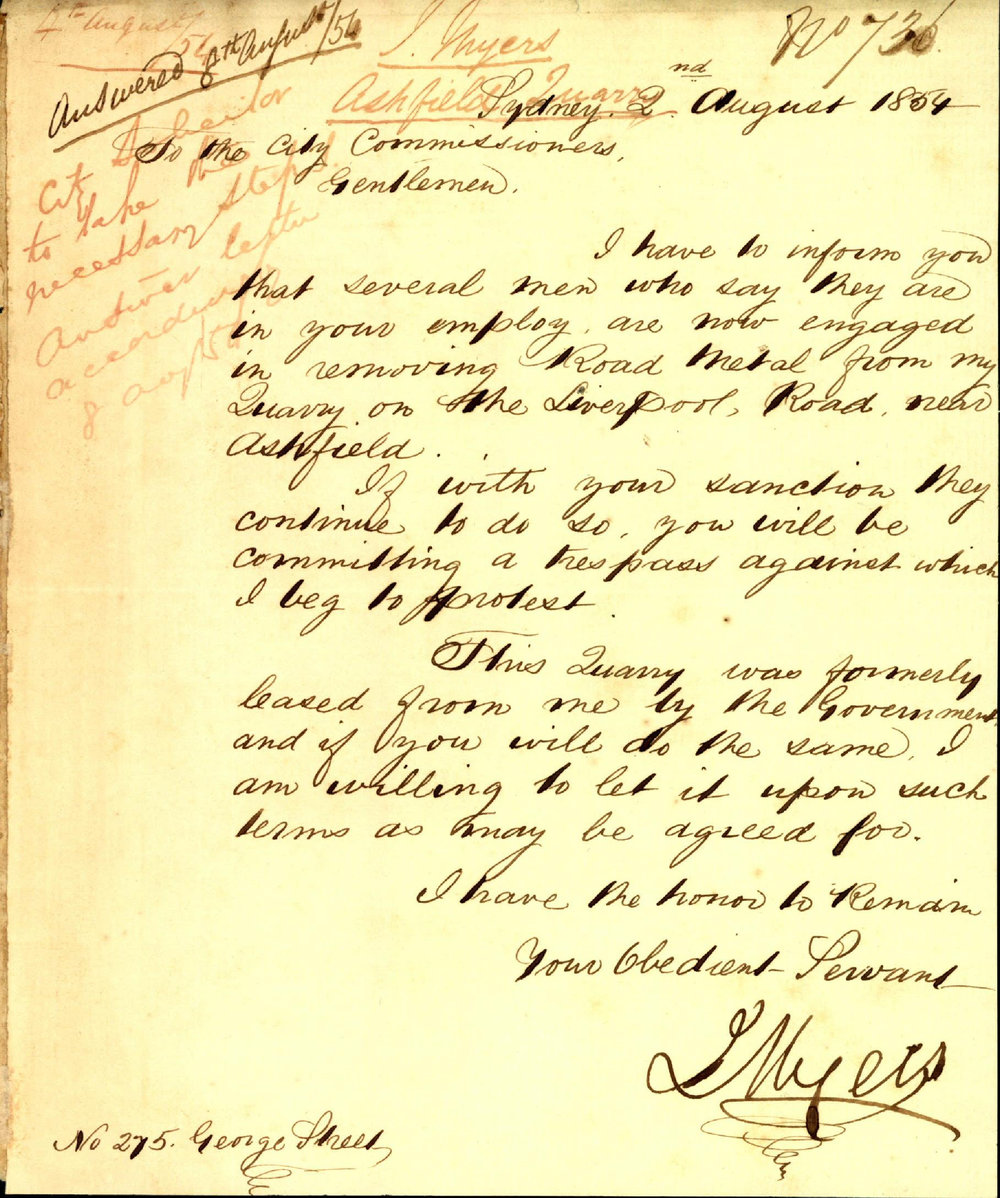 4th August/54
Answered 8th August/54
I. Myers
Ashfield Quarry
No 736
Sydney. 2nd August 1854
To the City Commissioners,
Gentlemen.
City Solicitor
to take the
necessary steps
Answer letter
accordingly
8 Aug/54
I have to inform you
that several men who say they are
in your employ, are now engaged
in removing Road Metal from my
Quarry on the Liverpool, Road, near
Ashfield.
If with your sanction they
continue to do so, you will be
committing a trespass against which
I beg to protest.
This Quarry was formerly
leased from me by the Government
and if you will do the same, I
am willing to let it upon such
terms as may be agreed for.
I have the honor to Remain
Your Obedient Servant
I Myers
No 275. George Street